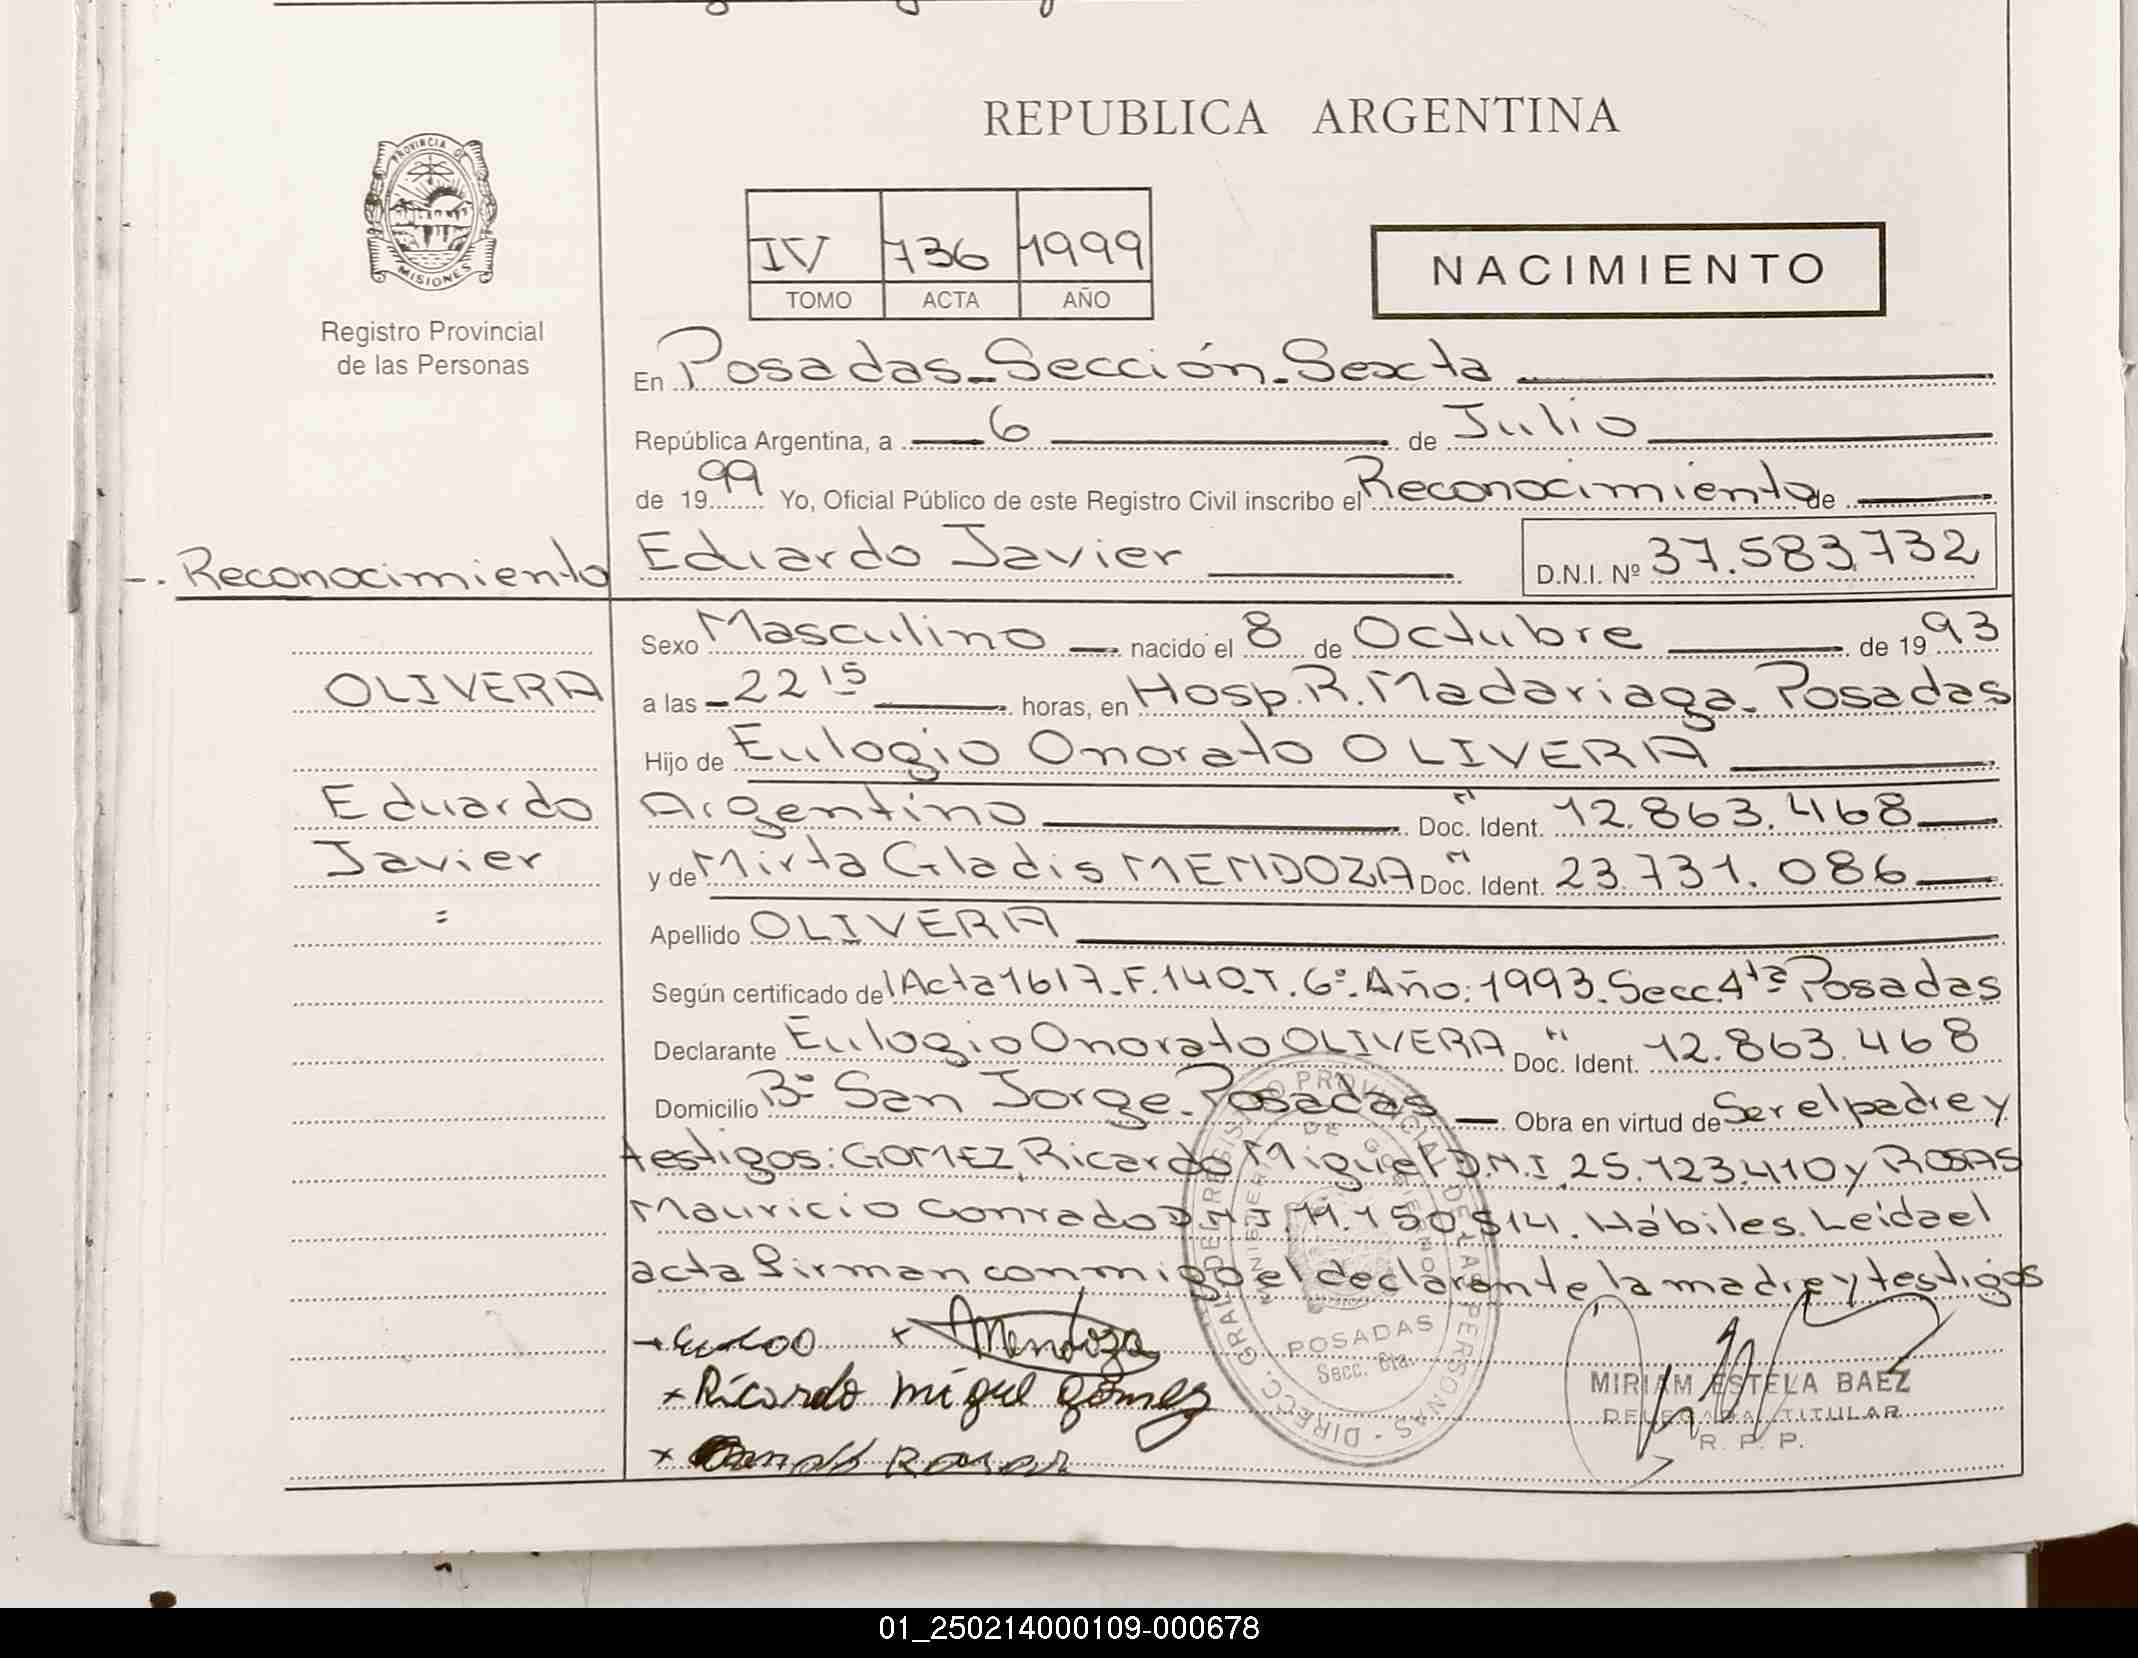 REPUBLICA ARGENTINA
PROVINCIA DE
MISIONES
Registro Provincial
de las Personas
IV 736 1999
TOMO ACTA AÑO
NACIMIENTO
En Posadas-Sección-Sexta
República Argentina, a 6 de Julio
de 1999 Yo, Oficial Público de este Registro Civil inscribo el Reconocimiento de
-. Reconocimiento
Eduardo Javier D.N.I. Nº 37.583.732
OLIVERA
Eduardo
Javier
=
Sexo Masculino nacido el 8 de Octubre de 1993
a las 22 15 horas, en Hosp. R. Madariaga-Posadas
Hijo de Eulogio Onorato OLIVERA
Argentino Doc. Ident. 12.863.468
y de Mirta Gladis MENDOZA Doc. Ident. 23.731.086
Apellido OLIVERA
Según certificado del Acta 1617-F.140-T.6º-Año:1993-Secc.4ta Posadas
Declarante Eulogio Onorato OLIVERA Doc. Ident. 12.863.468
Domicilio Bº San Jorge-Posadas Obra en virtud de Ser el padre y
testigos: GOMEZ, Ricardo Miguel D.N.I. 25.123.410 y ROSAS
Mauricio Conrado D.N.I. 11.150.514. Hábiles. Leída el
acta firman conmigo el declarante, la madre y testigos
x Mendoza
x Ricardo miguel gómez
x
DIRECC. GRAL. DEL REGISTRO PROVINCIAL DE LAS PERSONAS
MINISTERIO DE GOBIERNO
POSADAS
Secc. 6ta.
MIRIAM ESTELA BAEZ
DELEGADA TITULAR
R. P. P.
01_250214000109-000678